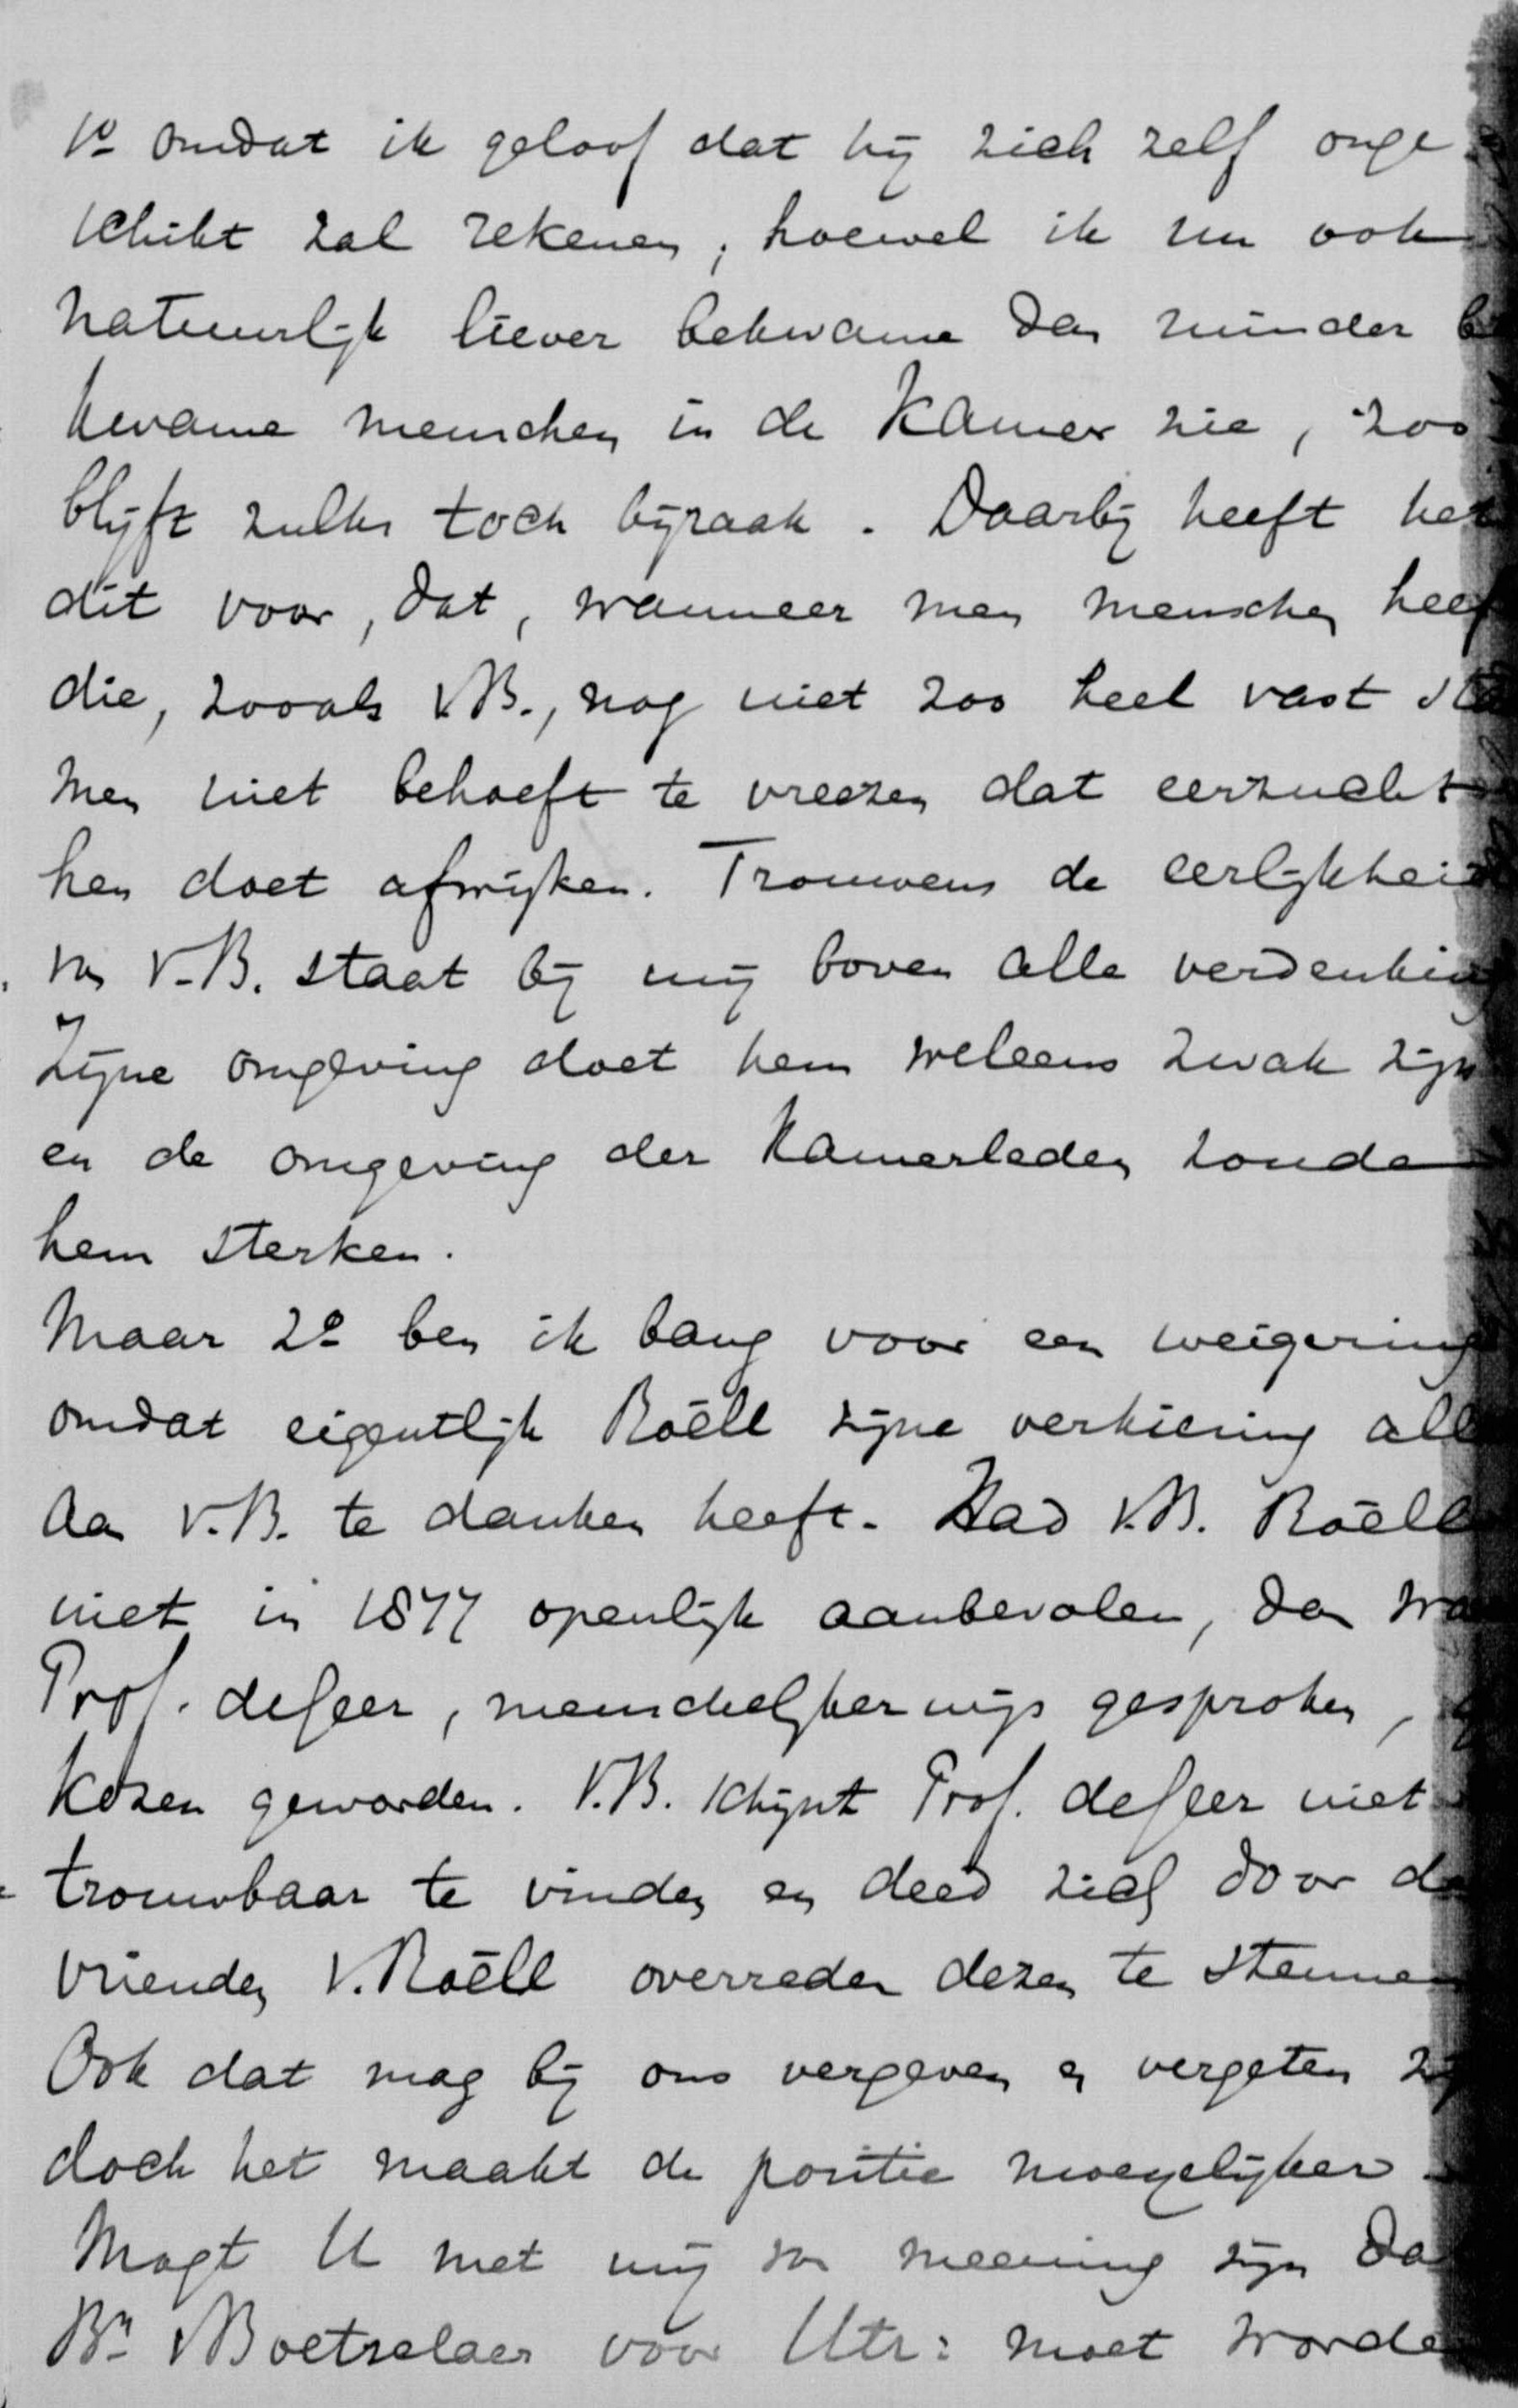 1º omdat ik geloof dat hij zich zelf onge
schikt zal rekenen; hoewel ik nu ook
natuurlijk liever bekwame dan minder be
kwame menschen in de Kamer zie, zoo
blijft zulks toch bijzaak. Daarbij heeft het
dit voor, dat, wanneer men menschen heef
die, zooals v.B., nog niet zoo heel vast sta
men niet behoeft te vreezen dat eerzucht
hen doet afwijken. Trouwens de eerlijkheid
van v.B. staat bij mij boven alle verdenking
Zijne omgeving doet hem weleens zwak zijn
en de omgeving der Kamerleden zoude
hem sterken.
Maar 2º ben ik bang voor een weigering
omdat eigentlijk Roëll zijne verkiezing all
aan v.B. te danken heeft. Had v.B. Roëll
niet in 1877 openlijk aanbevolen, dan wa
Prof. de Geer, menschelijkerwijs gesproken, g
kozen geworden. V.B. schijnt Prof. de Geer niet
trouwbaar te vinden en deed zich door de
vrienden v. Roëll overreden dezen te stemmen
Ook dat mag bij ons vergeven en vergeten zij
doch het maakt de positie moeyelijker.
Mogt U met mij van meening zijn da
Bn v Boetzelaer voor Utr: moet worde